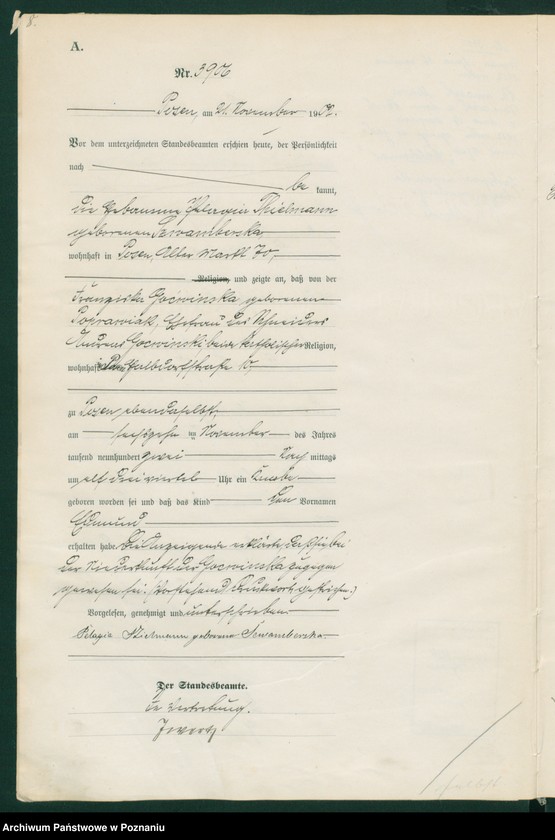 A.
Nr. 3906
Posen, am 21. November 1902.
Vor dem unterzeichneten Standesbeamten erschien heute, der Persönlichkeit
nach
be kannt,
die Hebamme Pelagia Thielmann
geborene
wohnhaft in Posen, Alter Markt 70,
Religion, und zeigte an, daß von der
Franziska geborenen
Ehefrau des Schneiders
Andreas beide katholischer Religion,
wohnhaft
zu Posen, ebendaselbst,
am sechszehnten November des Jahres
tausend neunhundert zwei Nach mittags
um elf dreiviertel Uhr ein Knabe
geboren worden sei und daß das Kind den Vornamen
Edmund
erhalten habe. Die Anzeigende erklärte, daß sie bei
der Niederkunft der zugegen
gewesen sei. (Vorstehend Druckwort gestrichen.)
Vorgelesen, genehmigt und unterschrieben
Pelagia geborene
Der Standesbeamte.
In Vertretung.
Archiwum Państwowe w Poznaniu